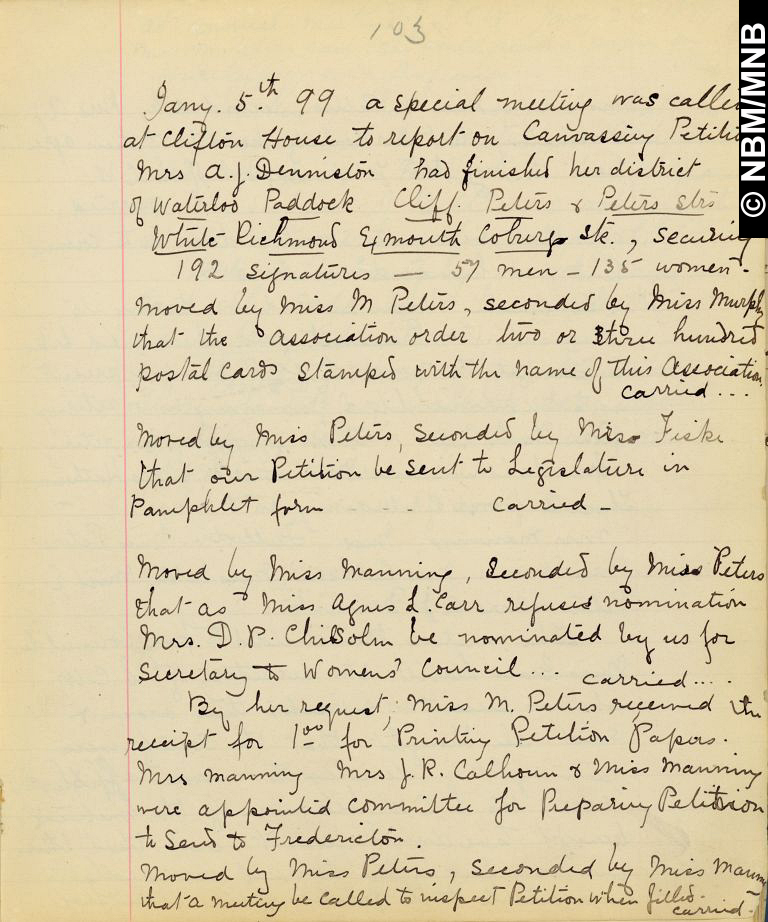 103
© NBM/MNB
Jany. 5.th 99 a special meeting was called
at Clifton House to report on Canvassing Petition
Mrs A.J. Denniston had finished her district
of Waterloo Paddock Cliff, Peters & Peters strs
White Richmond Exmouth Coburg sts., securing
192 signatures — 57 men - 135 women -
Moved by Miss M Peters, seconded by Miss Murphy
that the Association order two or three hundred
postal cards stamped with the name of this Association
carried...
Moved by Miss Peters, seconded by Mrs Fiske
that our Petition be sent to Legislature in
Pamphlet form - - carried -
Moved by Miss Manning, seconded by Miss Peters
that as Miss Agnes L. Carr refuses nomination
Mrs. D. P. Chisolm be nominated by us for
Secretary to Womens' Council... carried....
By her request, Miss M. Peters received the
receipt for 1.00 for Printing Petition Papers.
Mrs Manning Mrs J.R. Calhoun & Miss Manning
were appointed committee for Preparing Petition
to Send to Fredericton.
Moved by Miss Peters, seconded by Miss Manning
that a meeting be called to inspect Petition when filled.
carried -